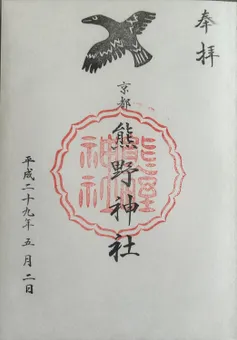 奉拝
京都
熊野神社
平成二十九年五月二日